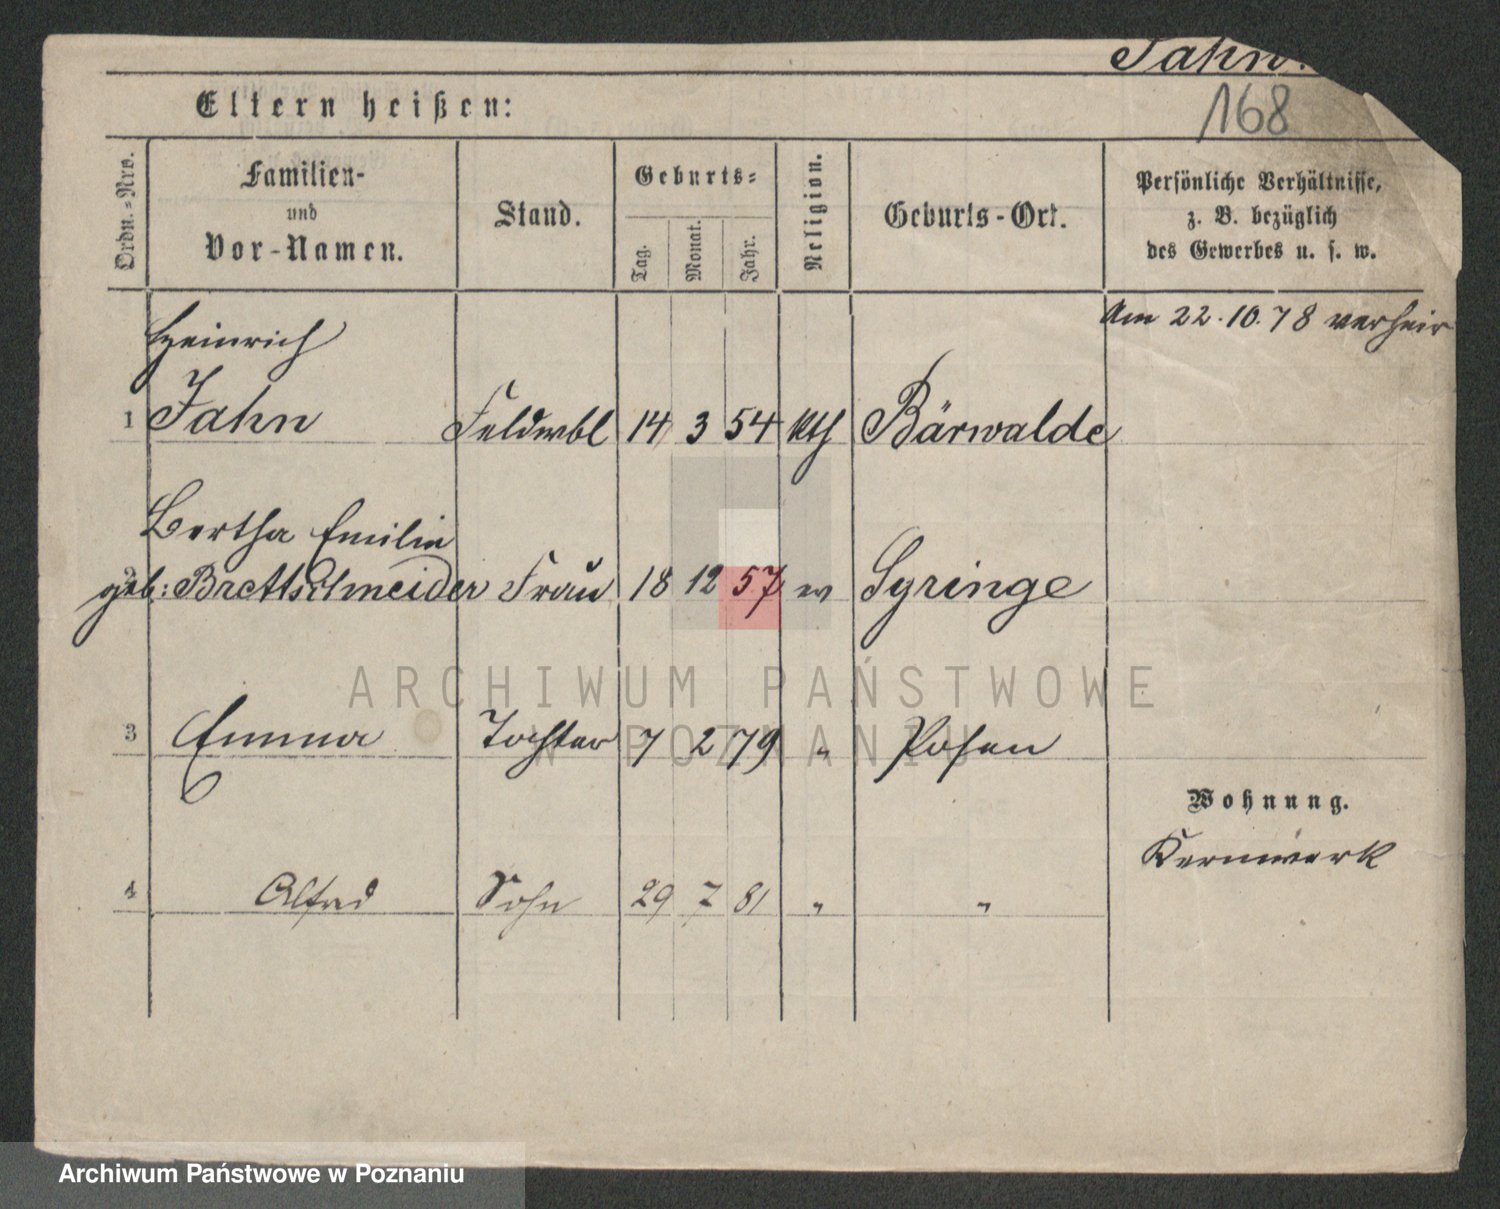 Jahn.
168
Eltern heißen:
Ordn.-Nro.
Familien-
und
Vor-Namen.
Stand.
Geburts-
Tag.
Monat.
Jahr.
Religion.
Geburts-Ort.
Persönliche Verhältnisse,
z. B. bezüglich
des Gewerbes u. s. w.
Am 22.10.78 verheir
Heinrich
1 Jahn Feldwbl 14 3 54 kth Bärwalde
Bertha Emilie
geb: Brettschneider Frau 18 12 57 ev Syringe
ARCHIWUM PAŃSTWOWE
W POZNANIU
3 Emma Tochter 7 2 79 " Posen
Wohnung.
Kernwerk
4 Alfred Sohn 29 7 81 " "
Archiwum Państwowe w Poznaniu